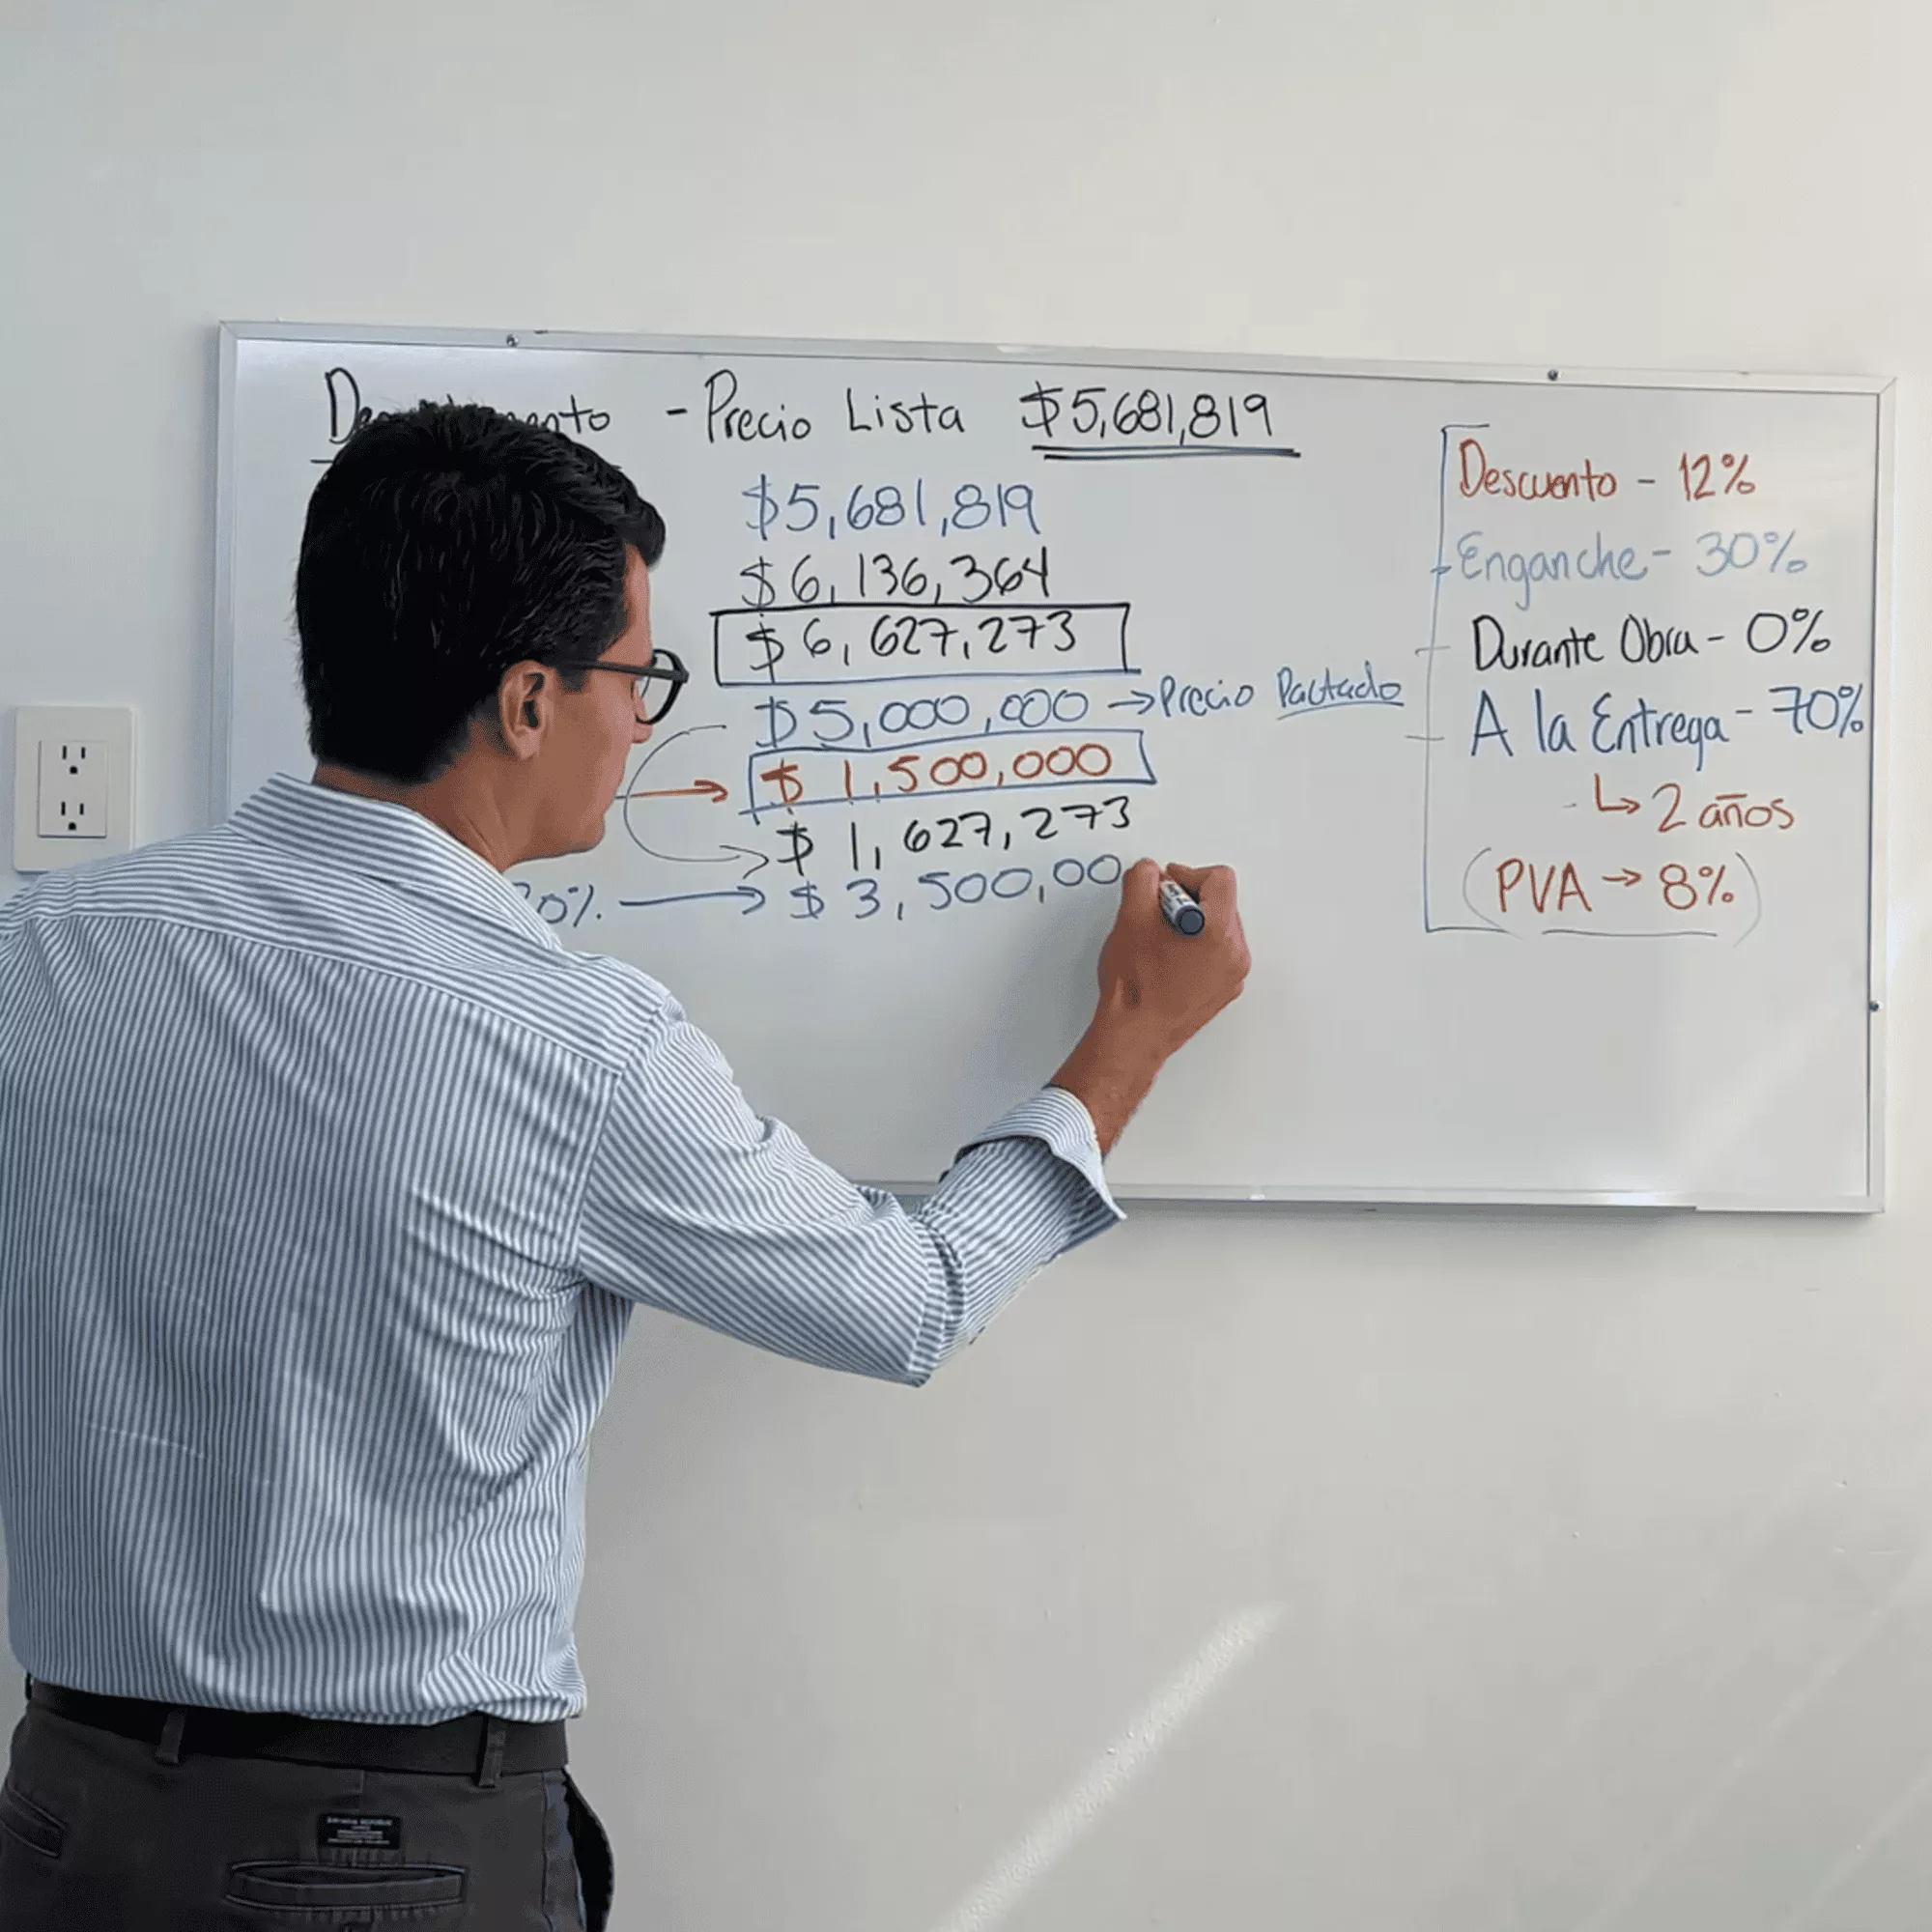 - Precio Lista $5,681,819
$5,681,819
$6,136,364
$6,627,273
$5,000,000 → Precio Pactado
→ $1,500,000
$1,627,273
0% → $3,500,00
Descuento - 12%
Enganche - 30%
Durante Obra - 0%
A la Entrega - 70%
↳ 2 años
(PVA → 8%)